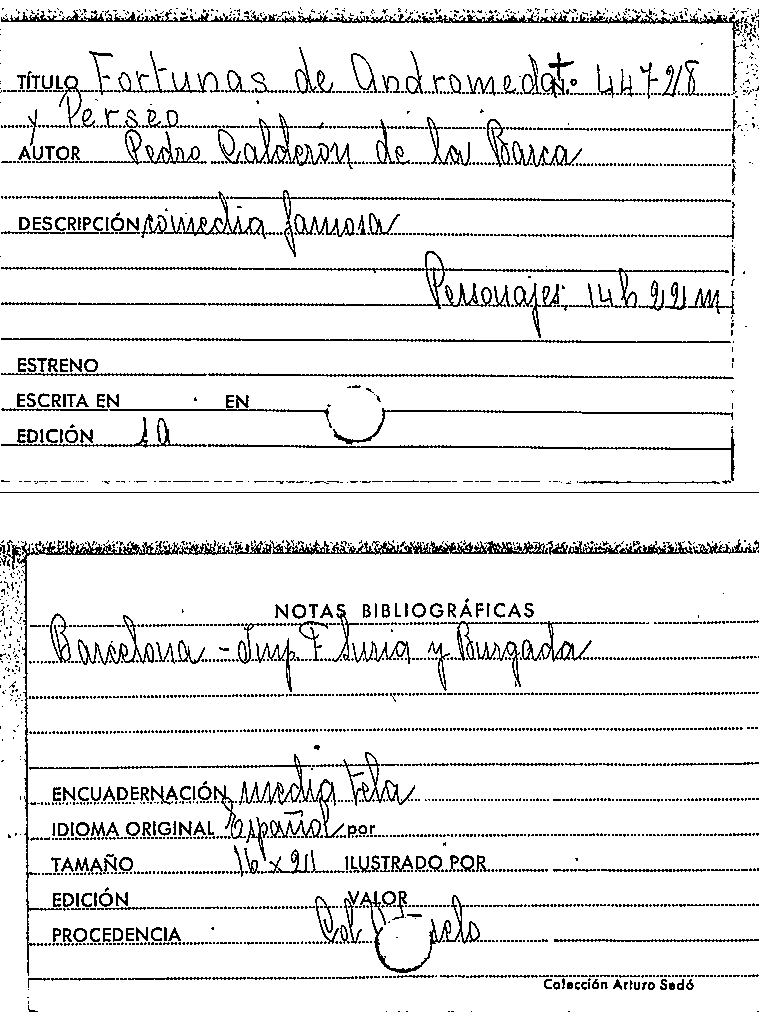 TÍTULO Fortunas de Andromeda t. 447-28
y Perseo
AUTOR Pedro Calderón de la Barca
DESCRIPCIÓN comedia famosa
Personajes: 14 h 22 m
ESTRENO
ESCRITA EN EN
EDICIÓN
NOTAS BIBLIOGRÁFICAS
Barcelona - Imp F Suria y Burgada
ENCUADERNACIÓN media tela
IDIOMA ORIGINAL Español por
TAMAÑO 16 x 21 ILUSTRADO POR
EDICIÓN VALOR
PROCEDENCIA Col
Colección Arturo Sedó